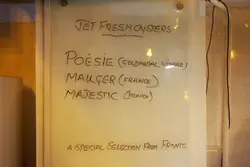 JET FRESH OYSTERS
POËSIE (GOLDMEDAL WINNER)
MAUGER (FRANCE)
MAJESTIC (FRANCE)
A SPECIAL SELECTION FROM FRANCE